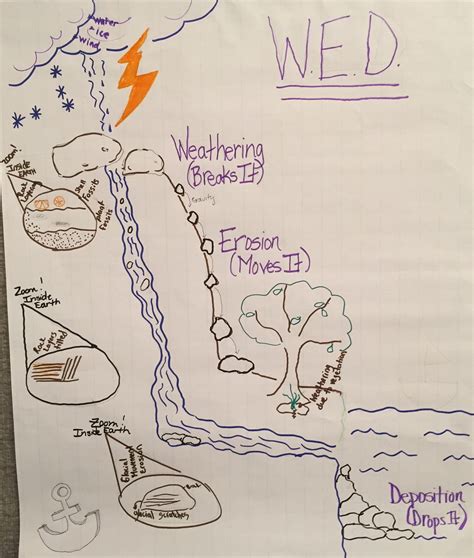 Water
ice
wind
W.E.D.
Weathering
(Breaks It)
gravity
Erosion
(Moves It)
Zoom!
Inside
Earth
Rock
Layers
Fossils
plant
Fossils
Zoom!
Inside
Earth
Rock
Layers
tilted
Weathering
due to vegetation
Zoom!
Inside Earth
Glacial Movement
Erosion
Rock
glacial scratches
Deposition
(Drops It)